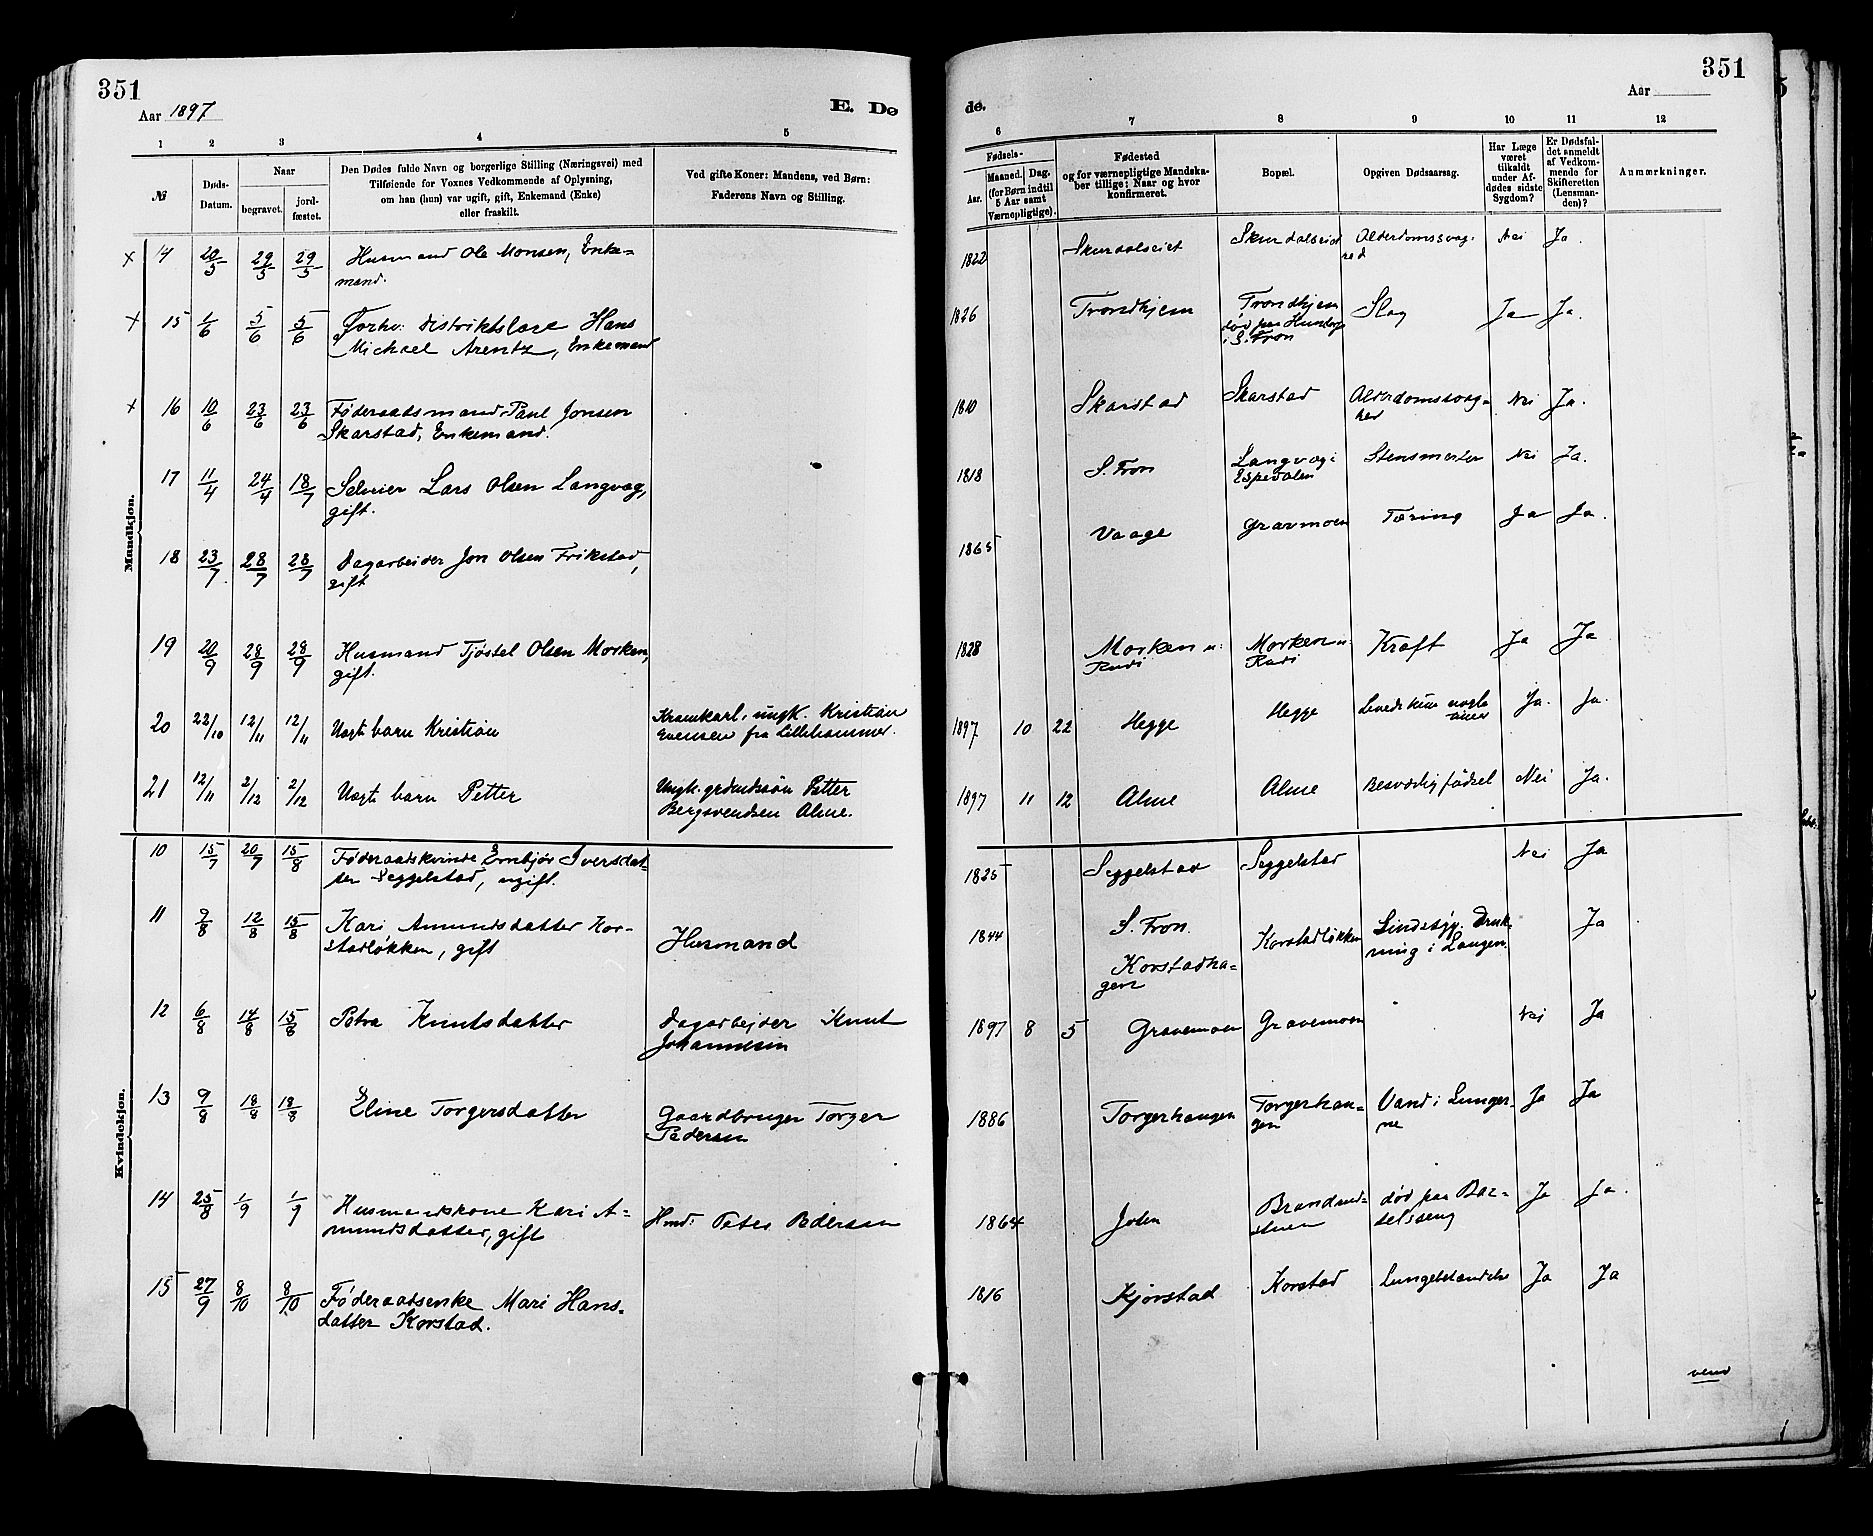 351
Aar 1897
E. Dø
1 2 3 4 5
№
Døds-
Datum.
Naar
begravet.
jord-
fæstet.
Den Dødes fulde Navn og borgerlige Stilling (Næringsvei) med
Tilføiende for Voxnes Vedkommende af Oplysning,
om han (hun) var ugift, gift, Enkemand (Enke)
eller fraskilt.
Ved gifte Koner: Mandens, ved Børn:
Faderens Navn og Stilling.
Mandkjøn.
x 14 20/5 29/5 29/5 Husmand Ole Monsen, Enke-
mand.
x 15 1/6 5/6 5/6 Forhv: Distriktslæge Hans
Michael Arentz, Enkemand
x 16 10/6 23/6 23/6 Føderaadsmand Paul Jonsen
Skarstad, Enkemand.
17 11/4 24/4 18/7 Selveier Lars Olsen Langvag,
gift.
18 23/7 28/7 28/7 Dagarbeider Jon Olsen Frikstad,
gift
19 20/9 28/9 28/9 Husmand Tjøstel Olsen Morken,
gift.
20 22/10 12/11 12/11 Uægt barn Kristian
Kramkarl, ungk. Kristian
Evensen fra Lillehammer.
21 12/11 2/12 2/12 Uægt barn Petter
Ungk. grdmdssøn Petter
Bergsvendsen Alme.
Kvindekjøn.
10 15/7 20/7 15/8 Føderaadskvinde Embjør Iversdat-
ter Seggelstad, ugift.
11 9/8 12/8 15/8 Kari Amundsdatter Kor-
stadløkken, gift
Husmand
12 6/8 14/8 15/8 Petra Knutsdatter
Dagarbejder Knut
Johannesen
13 9/8 18/8 18/8 Eline Torgersdatter
Gaardbruger Torger
Pedersen
14 25/8 1/9 1/9 Husmandskone Kari A-
mundsdatter, gift
Hmd: Peter Pedersen
15 27/9 8/10 8/10 Føderaadsenke Mari Hans-
datter Korstad.
351
Aar
de.
6 7 8 9 10 11 12
Fødsels-
Aar.
Maaned. Dag.
(for Børn indtil
5 Aar samt
Værnepligtige).
Fødested
og for værnepligtige Mandska-
ber tillige: Naar og hvor
konfirmeret.
Bopæl.
Opgiven Dødsaarsag.
Har Læge
været
tilkaldt
under Af-
dødes sidste
Sygdom?
Er Dødsfal-
det anmeldt
af Vedkom-
mende for
Skifteretten
(Lensman-
den)?
Anmærkninger.
1822 Skurdalseiet Skurdalseiet Alderdomssvag-
hed Nei Ja.
1826 Trondhjem Trondhjem
død paa
i S. Fron Slag Ja Ja.
1810 Skarstad Skarstad Alderdomssvag-
hed Nei Ja.
1818 S. Fron Langvag i
Espedalen Stensmerter Nei Ja.
1865 Vaage Gravmoen Tæring Ja Ja.
1828 Morken u:
Rudi Morken u:
Rudi Kræft Ja Ja
1897 10 22 Hegge Hegge Levede kun nogle
timer Ja. Ja.
1897 11 12 Alme Alme Besværlig fødsel Nei Ja.
1825 Seggelstad Seggelstad Nei Ja
1844 S. Fron.
Korstadha-
gen Korstadløkken Sindssyg. Druk-
ning i Laagen. Ja
1897 8 5 Gravemoen Gravemoen Nei Ja
1886 Torgerhaugen Torgerhau-
gen Vand i Lunger-
ne Ja Ja
1864 Joten Brandvold-
stuen død paa Bar-
selsseng Ja Ja.
1816 Kjørstad Korstad Lungebetændelse Ja Ja
vend